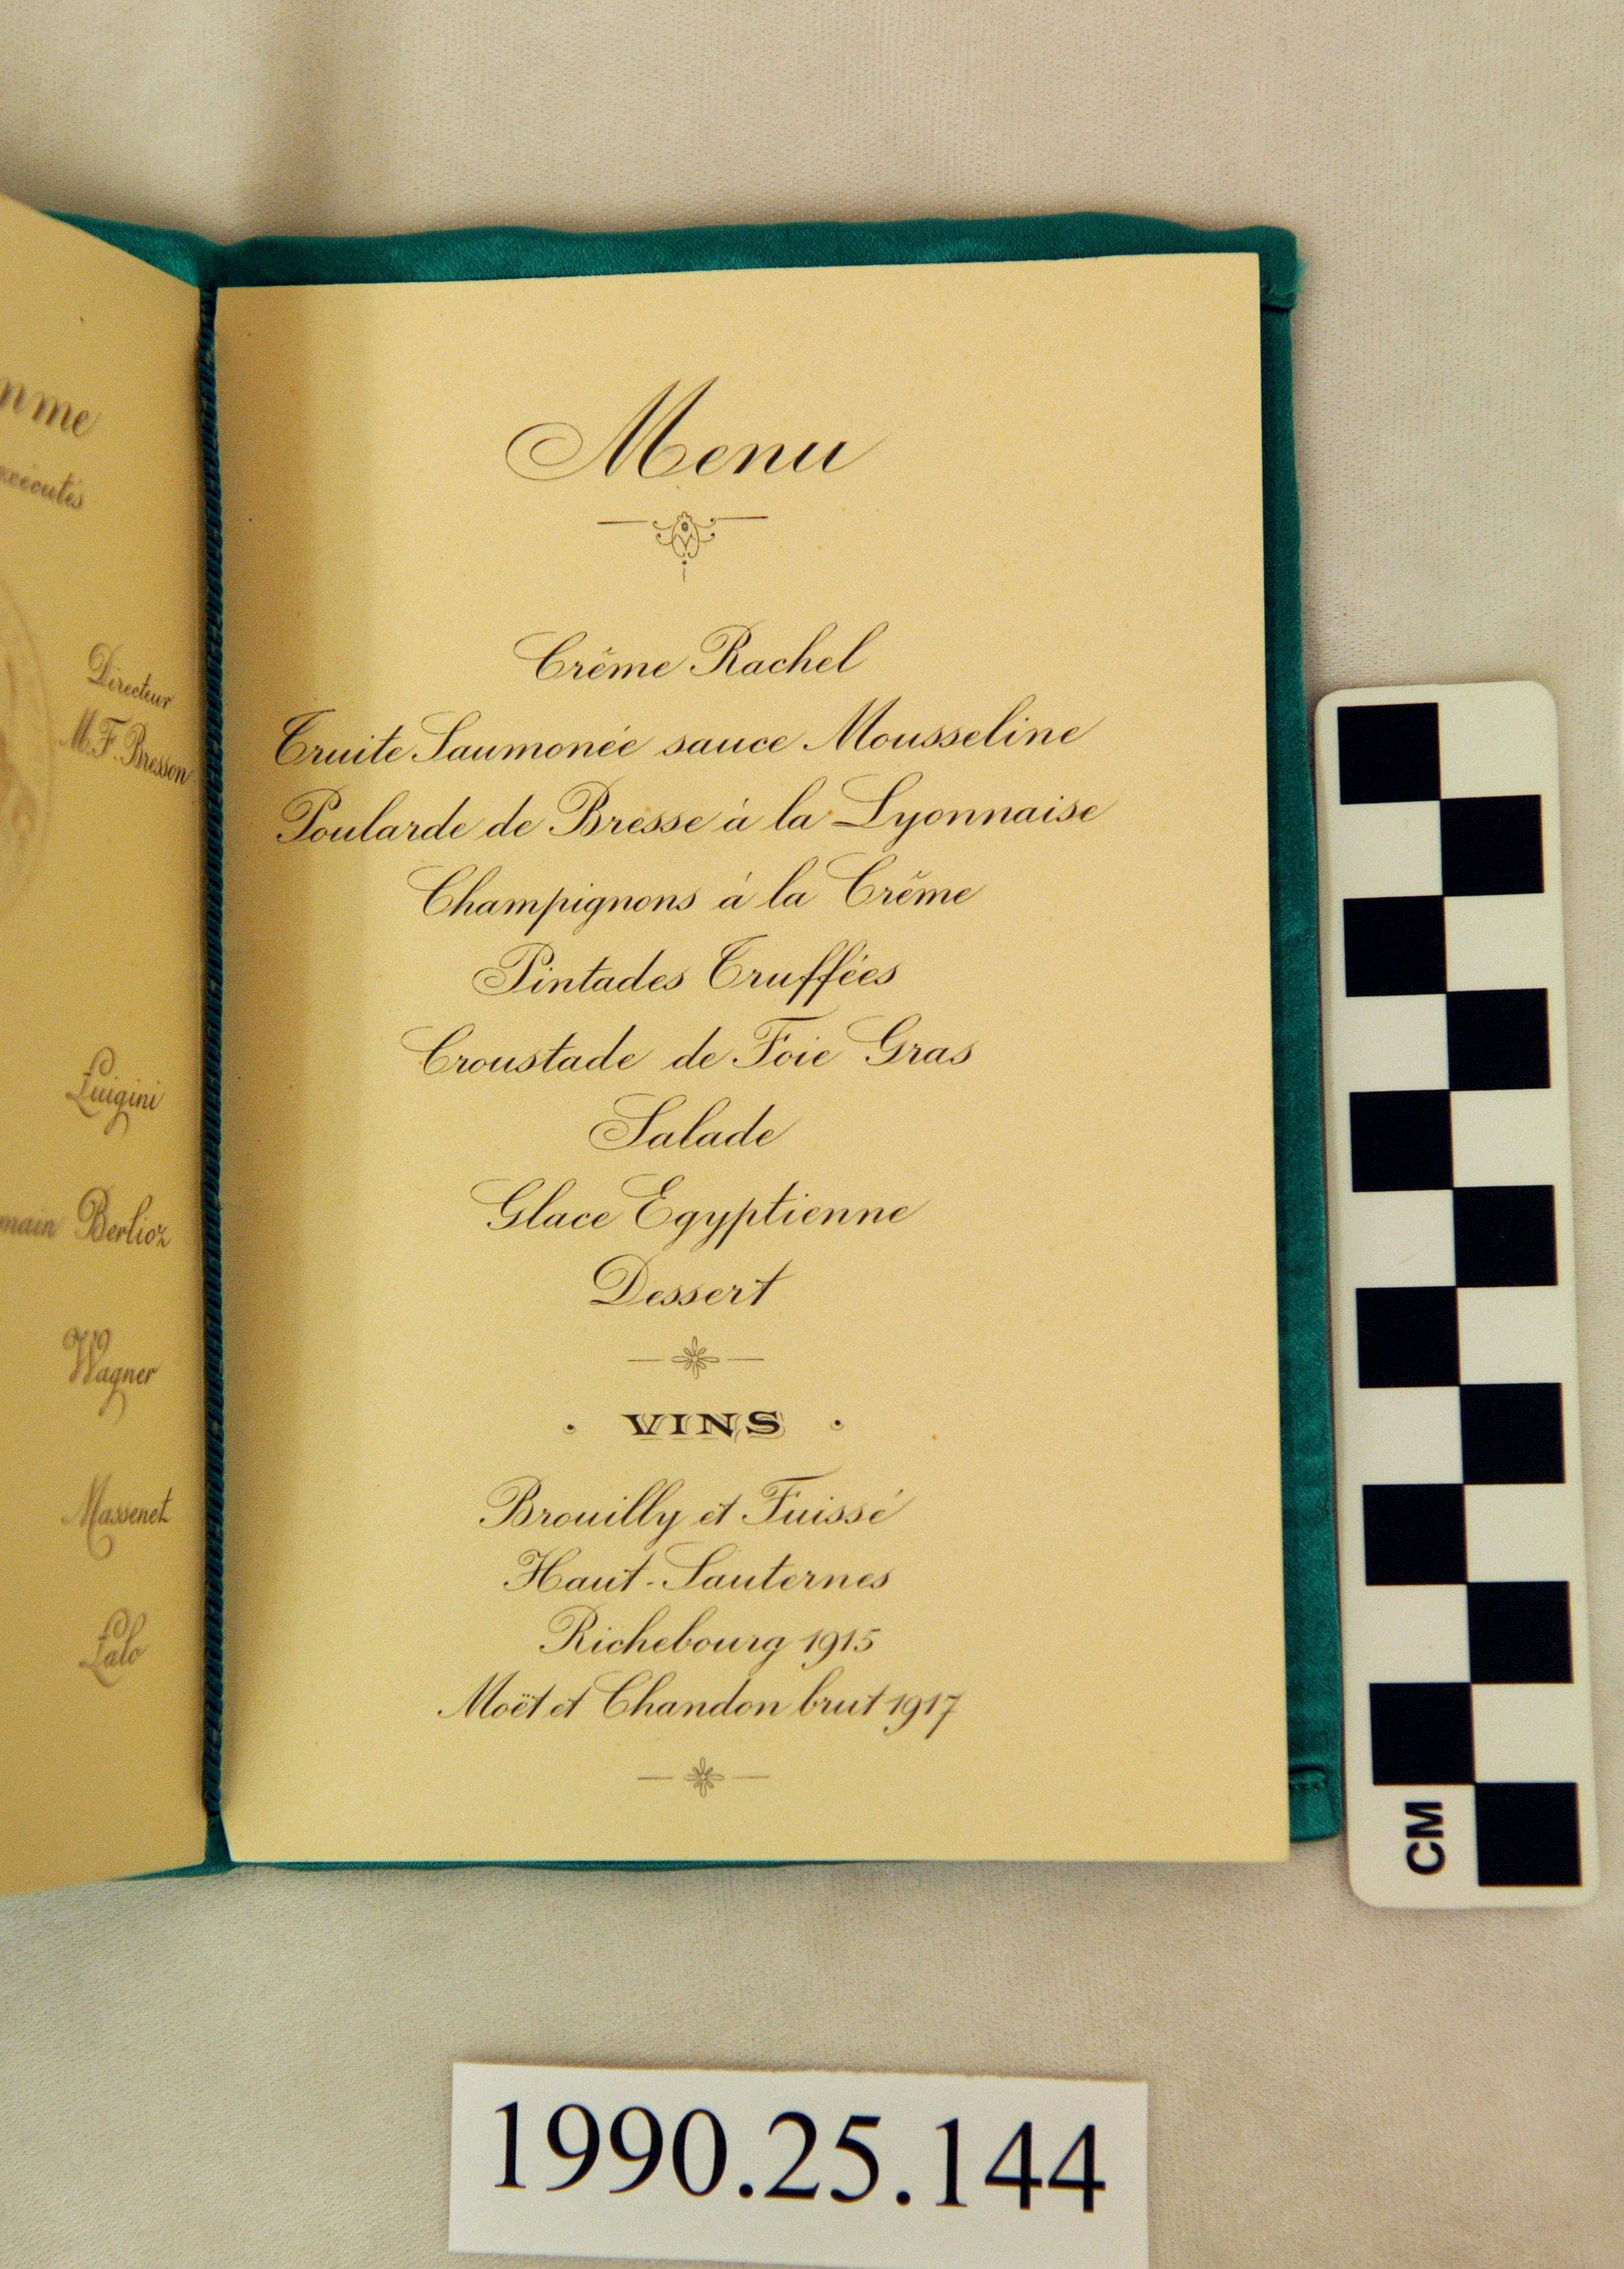 Directeur
M. F. Bresson
Luigini
Berlioz
Wagner
Massenet
Lalo
Menu
Crême Rachel
Truite Saumonée sauce Mousseline
Poularde de Bresse à la Lyonnaise
Champignons à la Crême
Pintades Truffées
Croustade de Foie Gras
Salade
Glace Egyptienne
Dessert
· VINS ·
Brouilly et Fuissé
Haut-Sauternes
Richebourg 1915
Moët et Chandon brut 1917
CM
1990.25.144